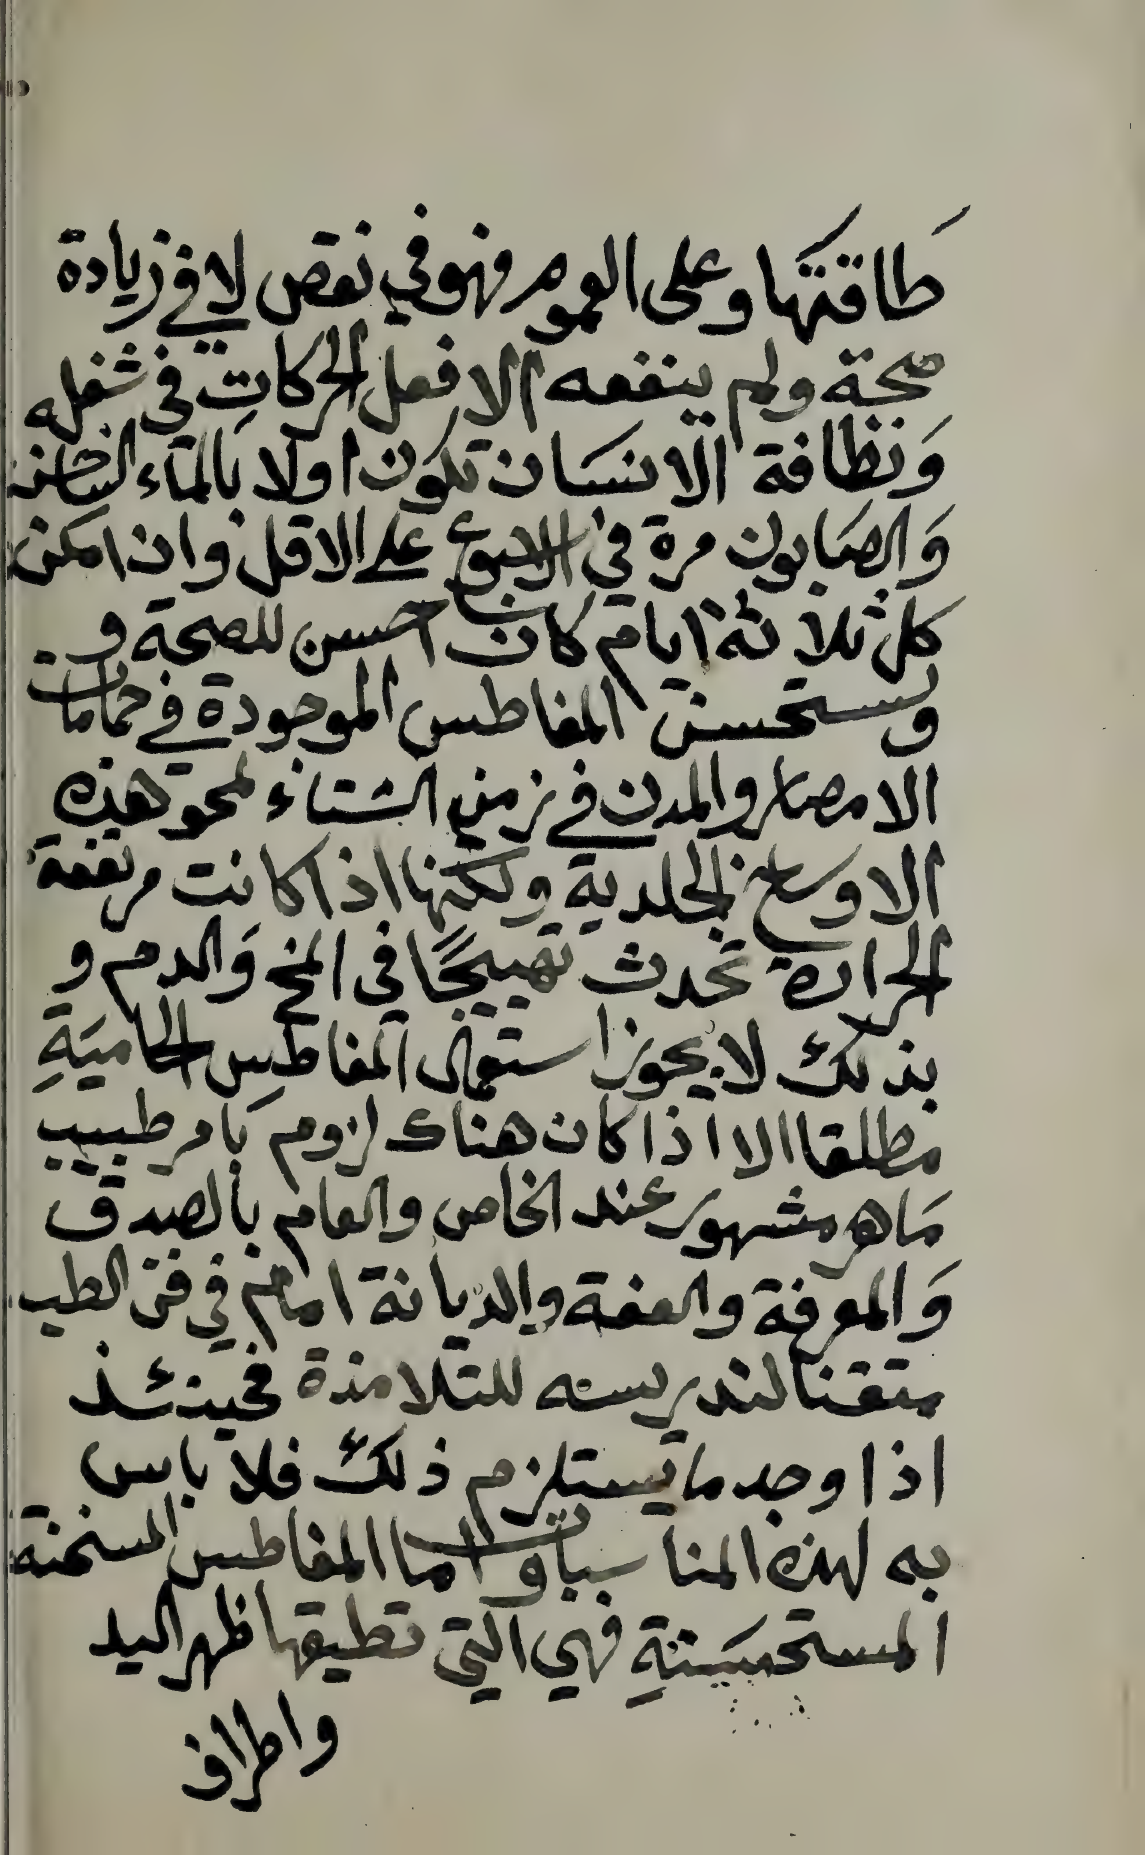 طَاقَتَها وعلى العموم فهو في نقص لا في زيادة
صحة ولم ينفعه الا فعل الحركاتِ في شغله
وَنظافة الانسَان تكون اولا بالمَاء الساخن
وَالصَابون مرة في الاسبوع على الاقل وان امكن
كل ثلاثة ايام كان احسن للصحة و
ويستحسن المغاطس الموجودة في حمامات
الامصار والمدن في زمن الشتاء لمحو هذه
الاوساخ الجلدية ولكنها اذا كانت مرتفعة
الحرارة تحدث تهييجًا في المخ وَالدم و
بذلك لا يجوز استعمال المغاطس الحاميَةِ
مطلقا الا اذا كان هناك لزوم بَامر طبيب
مَاهر مشهور عند الخاص والعام بالصدق
وَالمعرفة والعفة والديانة امام في فن الطب
متقنا لتدريسه للتلامذة فحينئذ
اذا وجد ما يستلزم ذلك فلا باس
به لهذه المناسبات واما المغاطس المسخنة
المستحسَنةِ فهي التي تطيقها ظهر اليد
واطراف